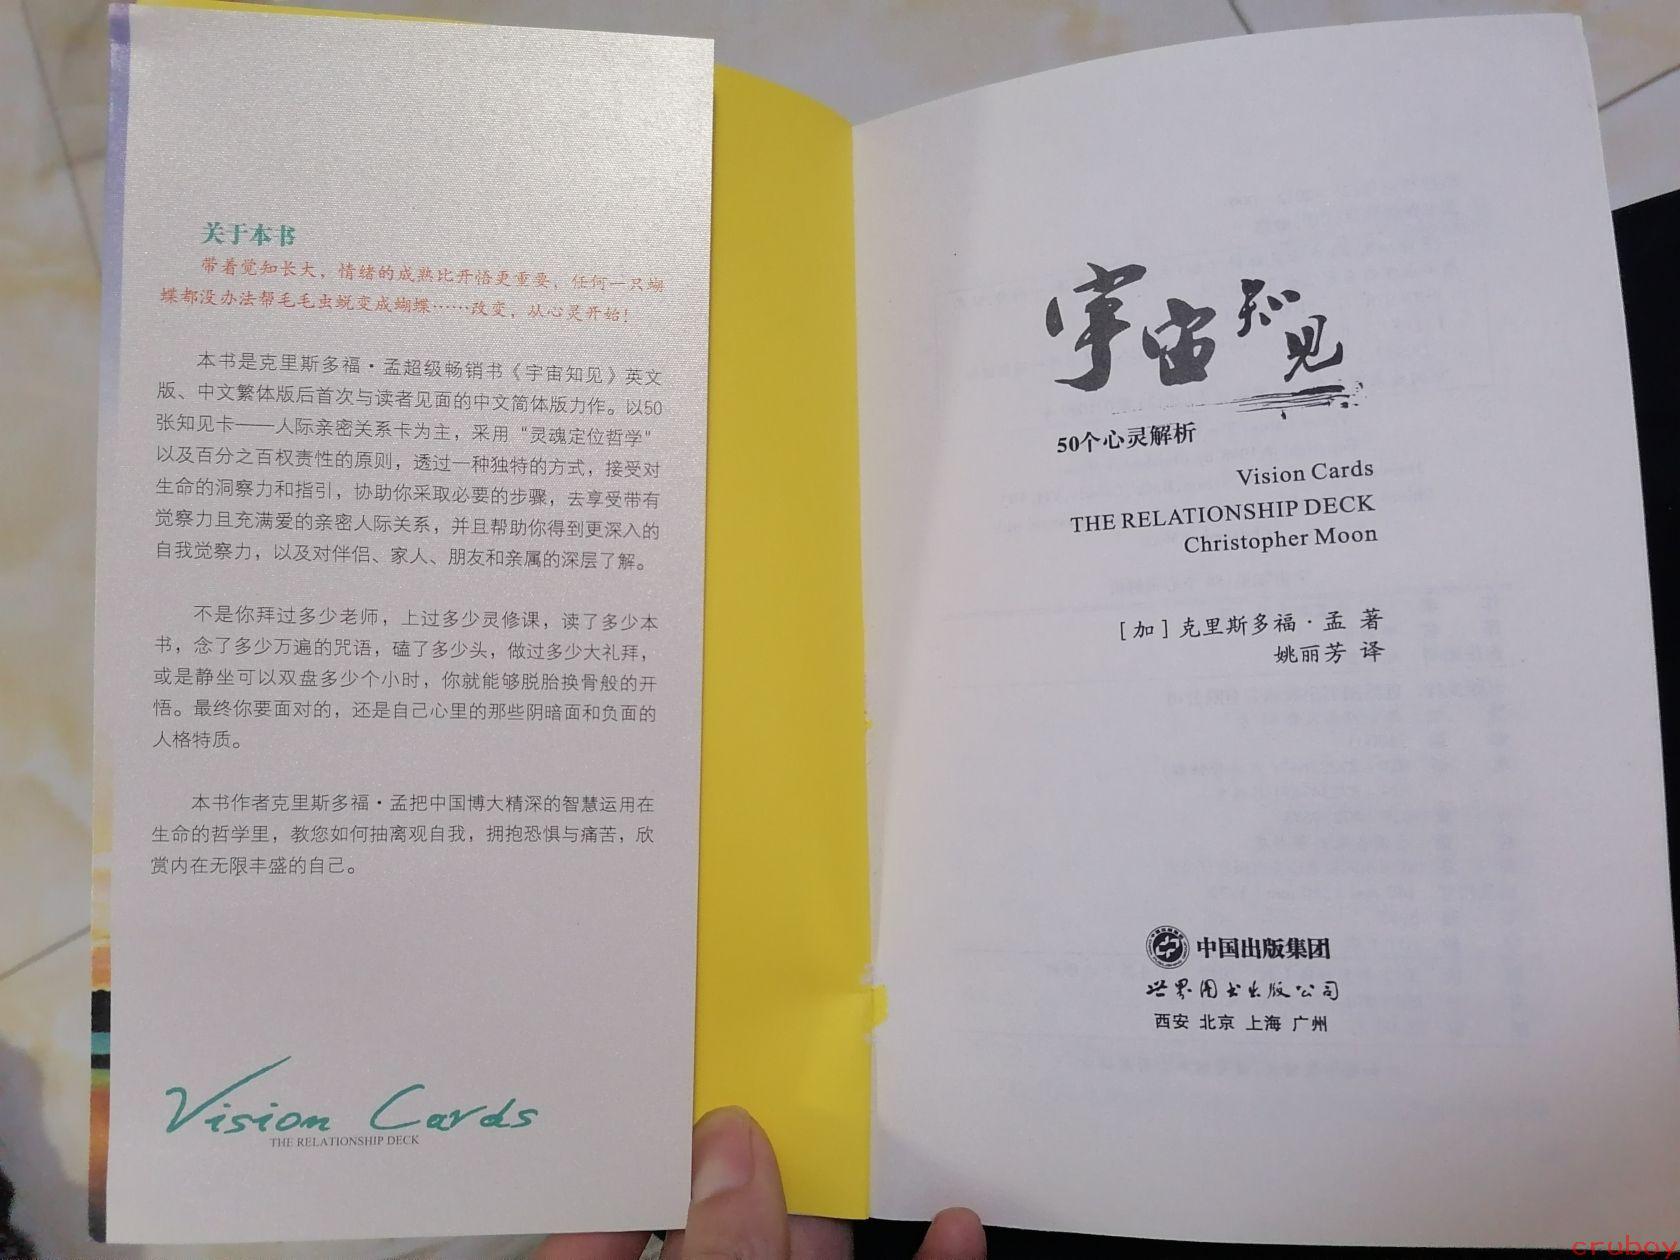 关于本书
带着觉知长大，情绪的成熟比开悟更重要，任何一只蝴
蝶都没办法帮毛毛虫蜕变成蝴蝶……改变，从心灵开始！
本书是克里斯多福·孟超级畅销书《宇宙知见》英文
版、中文繁体版后首次与读者见面的中文简体版力作。以50
张知见卡——人际亲密关系卡为主，采用“灵魂定位哲学”
以及百分之百权责性的原则，透过一种独特的方式，接受对
生命的洞察力和指引，协助你采取必要的步骤，去享受带有
觉察力且充满爱的亲密人际关系，并且帮助你得到更深入的
自我觉察力，以及对伴侣、家人、朋友和亲属的深层了解。
不是你拜过多少老师，上过多少灵修课，读了多少本
书，念了多少万遍的咒语，磕了多少头，做过多少大礼拜，
或是静坐可以双盘多少个小时，你就能够脱胎换骨般的开
悟。最终你要面对的，还是自己心里的那些阴暗面和负面的
人格特质。
本书作者克里斯多福·孟把中国博大精深的智慧运用在
生命的哲学里，教您如何抽离观自我，拥抱恐惧与痛苦，欣
赏内在无限丰盛的自己。
Vision Cards
THE RELATIONSHIP DECK
宇宙知见
50个心灵解析
Vision Cards
THE RELATIONSHIP DECK
Christopher Moon
［加］克里斯多福·孟 著
姚丽芳 译
中国出版集团
世界图书出版公司
西安 北京 上海 广州
cruboy